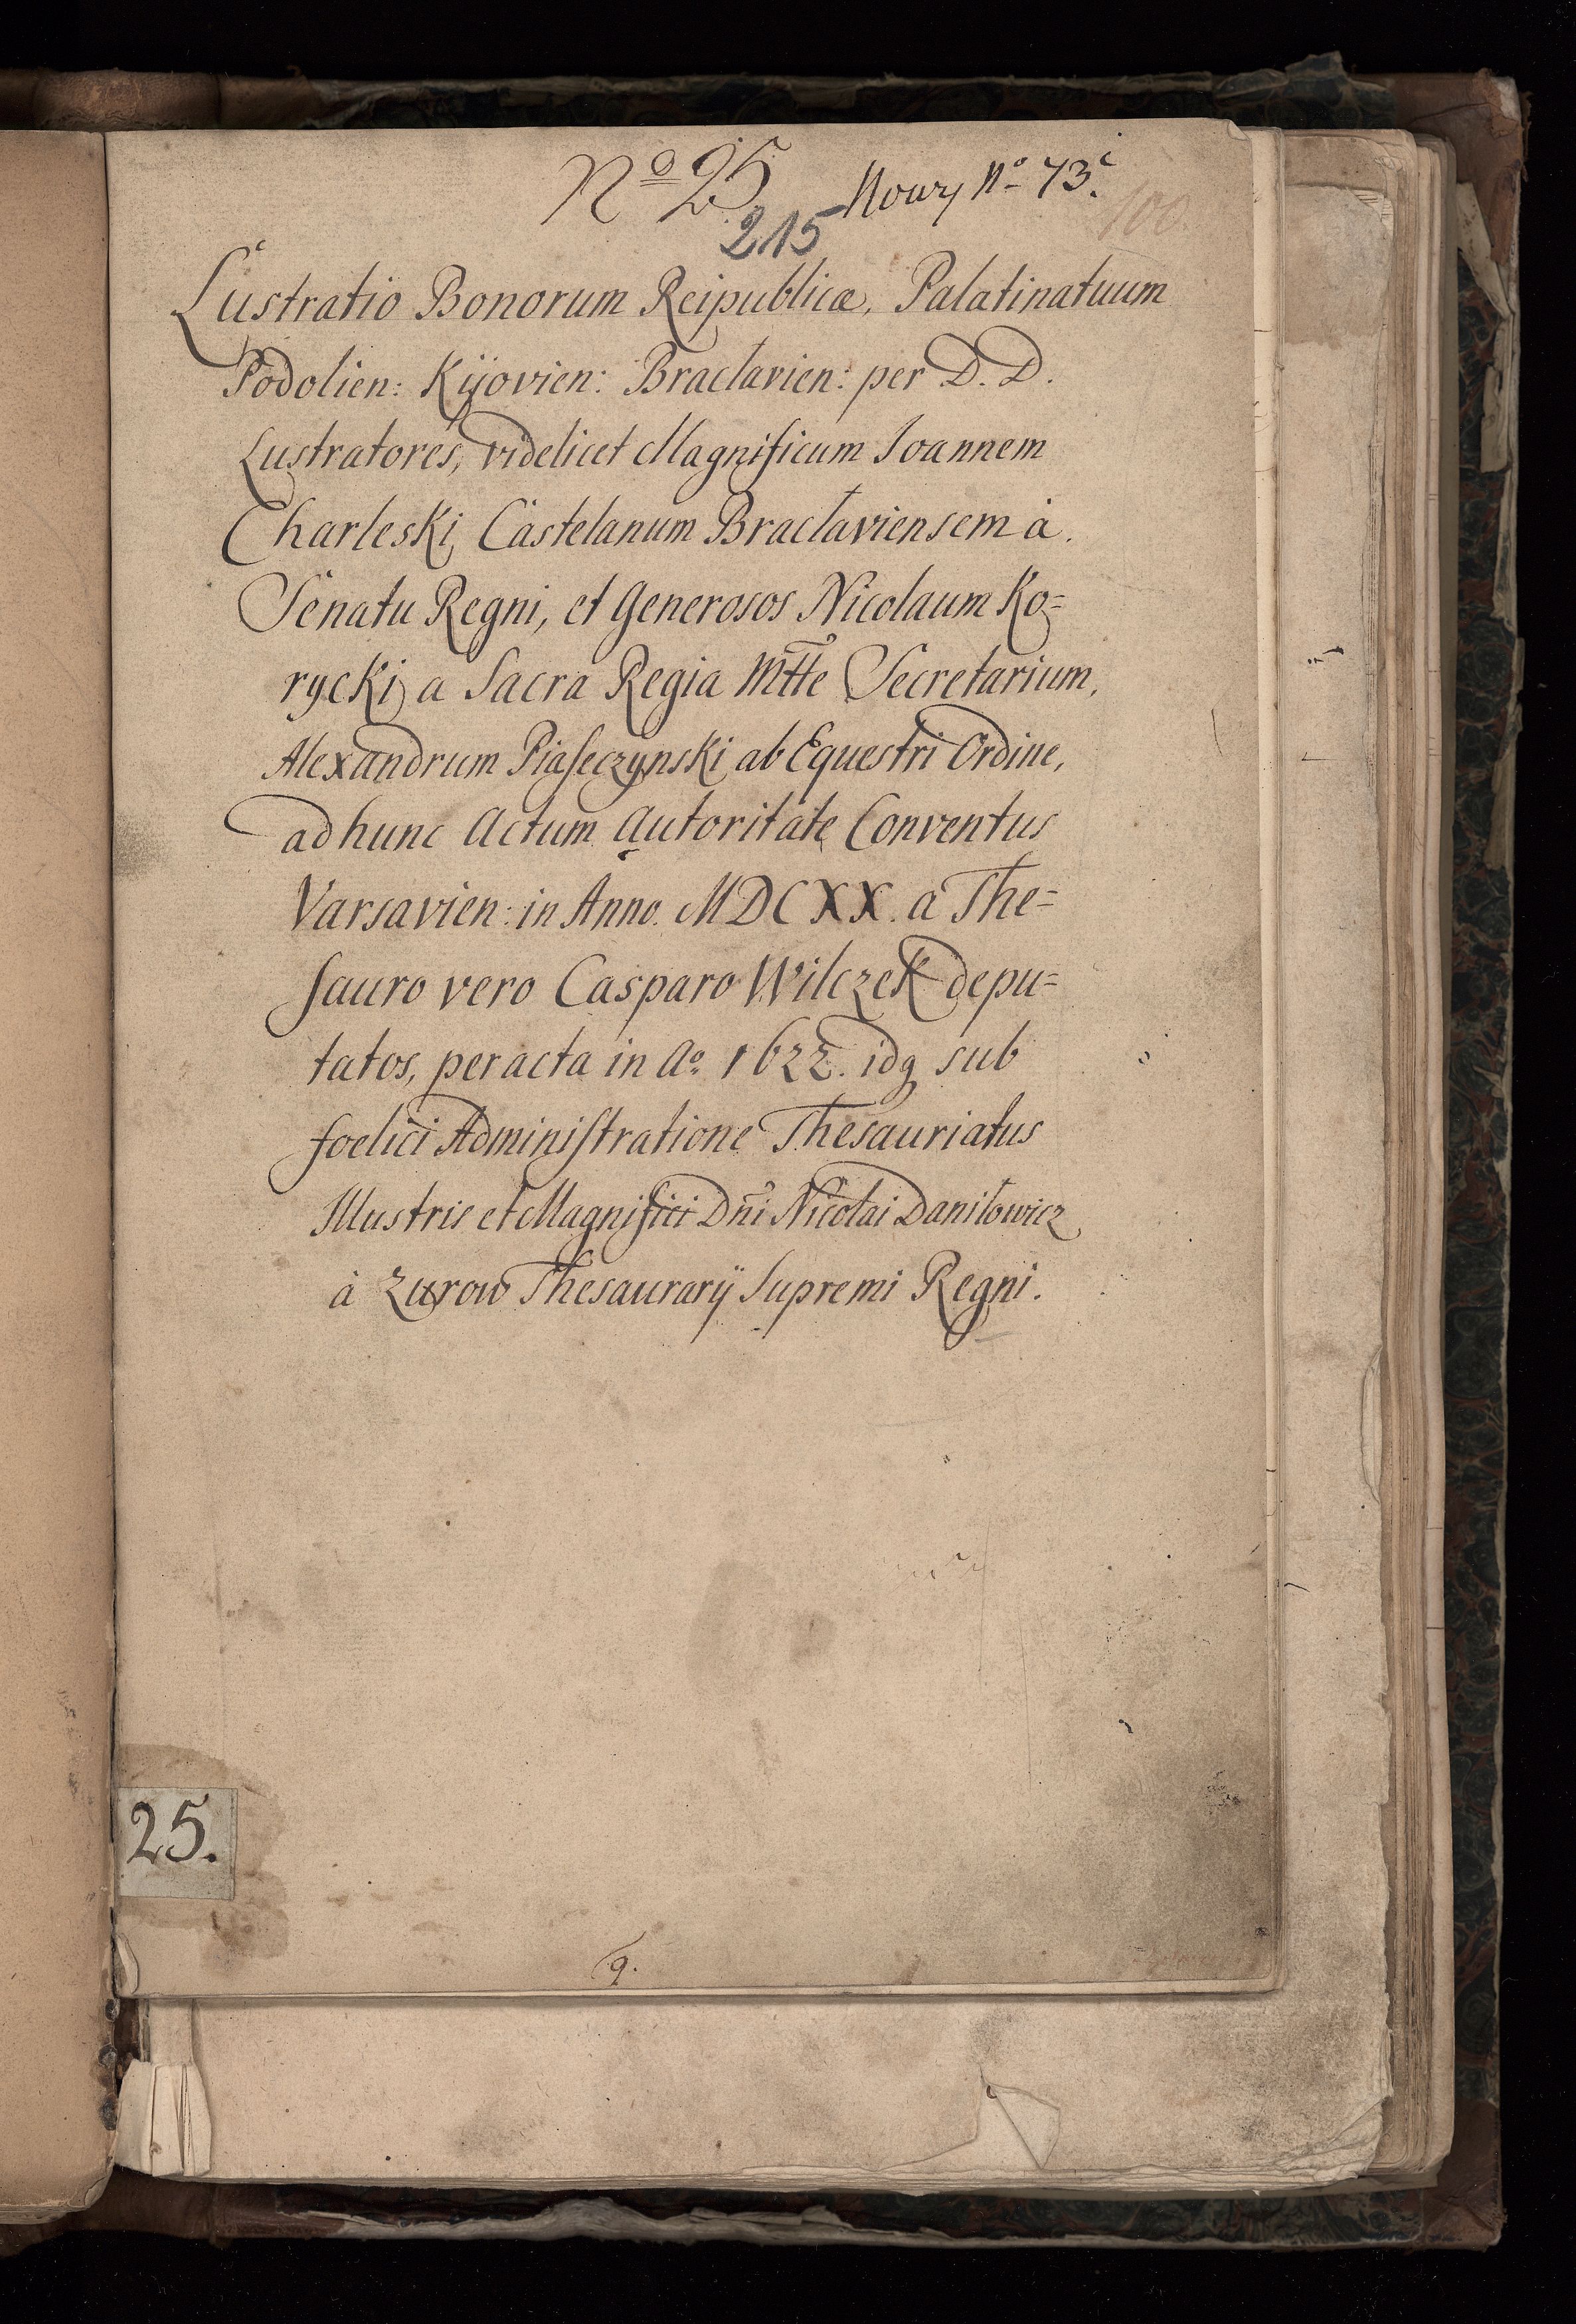 No 25
Nowy No 73.
215
100.
Lustratio Bonorum Reipublicæ, Palatinatuum
Podolien: Kijovien: Braclavien: per D. D.
Lustratores, videlicet Magnificum Joannem
Charleski Castelanum Braclaviensem à
Senatu Regni, et Generosos Nicolaum Ko=
rycki a Sacra Regia Mtte Secretarium,
Alexandrum Piaseczynski ab Equestri Ordine,
ad hunc Actum Autoritate Conventus
Varsavien: in Anno. MDCXX. a The=
sauro vero Casparo Wilczek depu=
tatos, peracta in Ao. 1622. idq sub
foelici Administratione Thesauriatus
Illustris et Magnifici Dni Nicolai Daniłowicz
à Zurow Thesaurarij Supremi Regni.
25.
9.